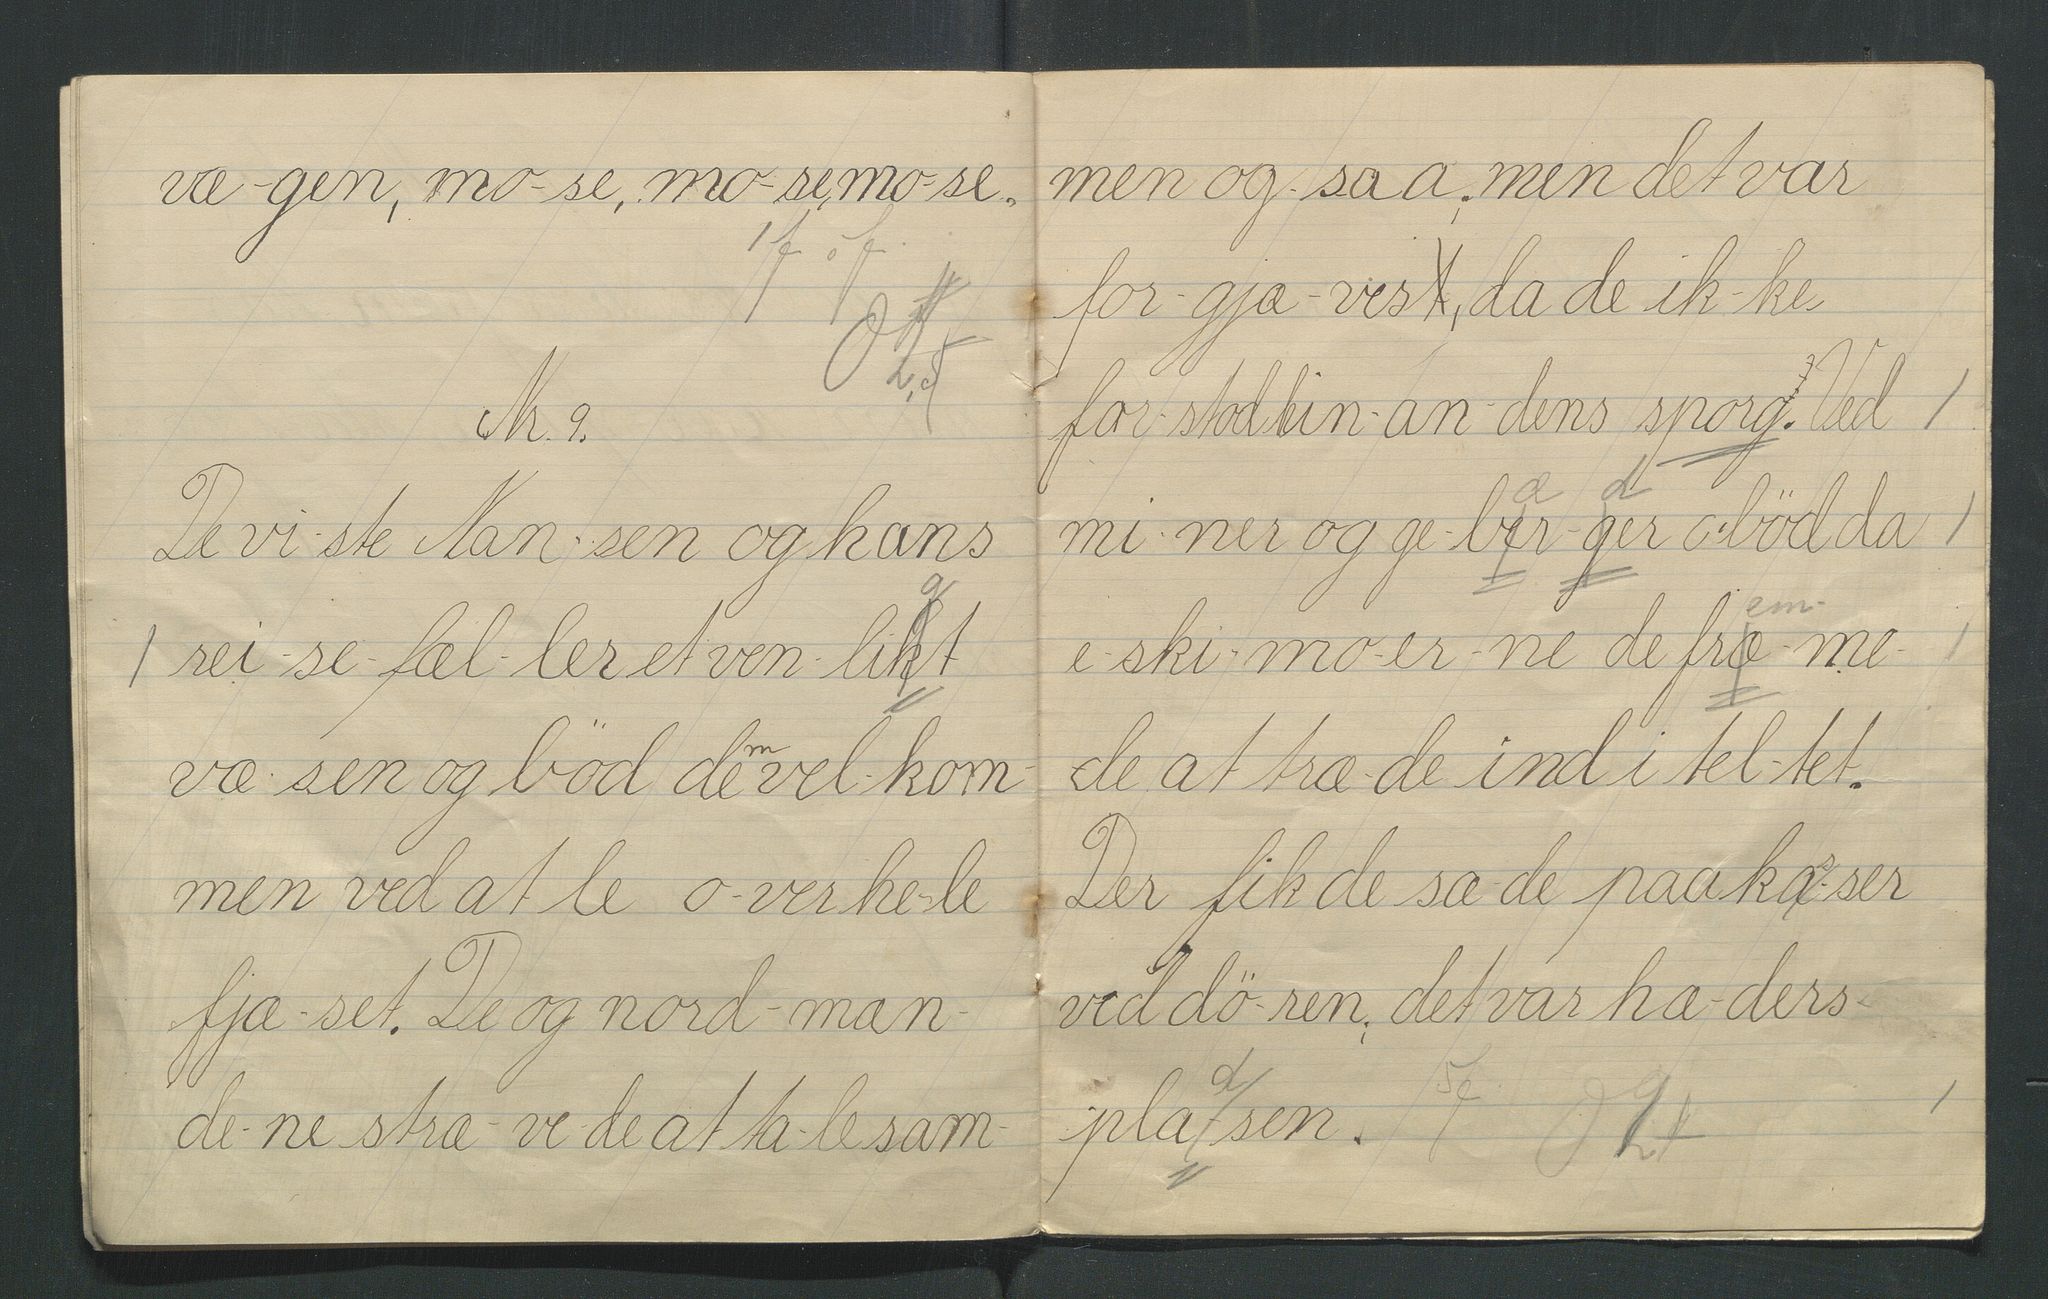 væ-gen, mo-se, mo-se, mo-se.
1f öf.
2,5
Nr. 9.
De vi-ste Nan-sen og hans
g
/ rei-se-fæl-ler et ven-likt
m
væ-sen og böd de vel-kom-
men ved at le o-ver he-le
fjæ-set. De og nord-mæn-
de-ne stræ-ve-de at ta-le sam-
men og-saa; men det var
for-gjæ-vest, da de ik-ke
for-stod hin-an-dens sporg. Ved /
æ d
mi-ner og ge-ber-ger böd da /
em-
e-ski-mo-er-ne de fræ-me- /
de at træ-de ind i tel-tet.
Der fik de sæ-de paa kas-ser
ved dö-ren; det var hæ-ders-
d 5f.
platsen. /